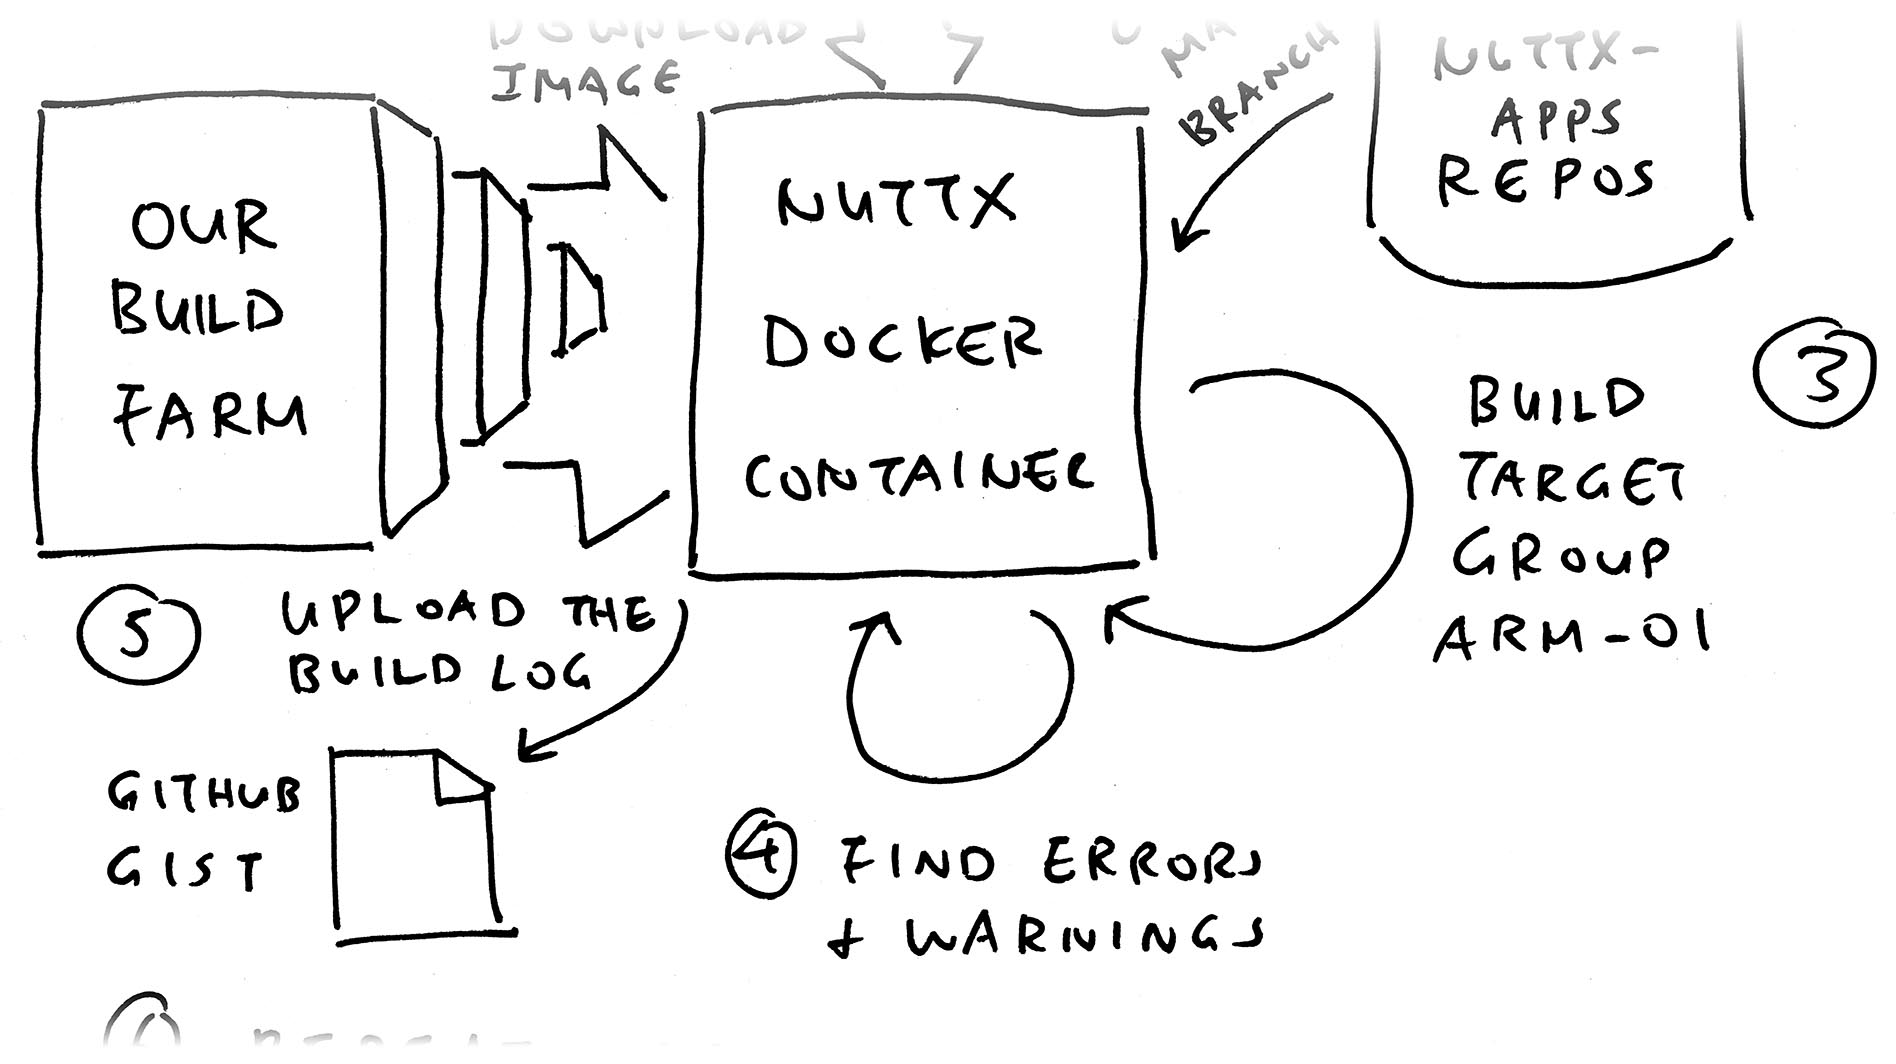 DOWNLOAD
IMAGE
BRANCH
NUTTX-
APPS
REPOS
OUR
BUILD
FARM
NUTTX
DOCKER
CONTAINER
3
BUILD
TARGET
GROUP
ARM-01
5
UPLOAD THE
BUILD LOG
GITHUB
GIST
4
FIND ERRORS
+ WARNINGS